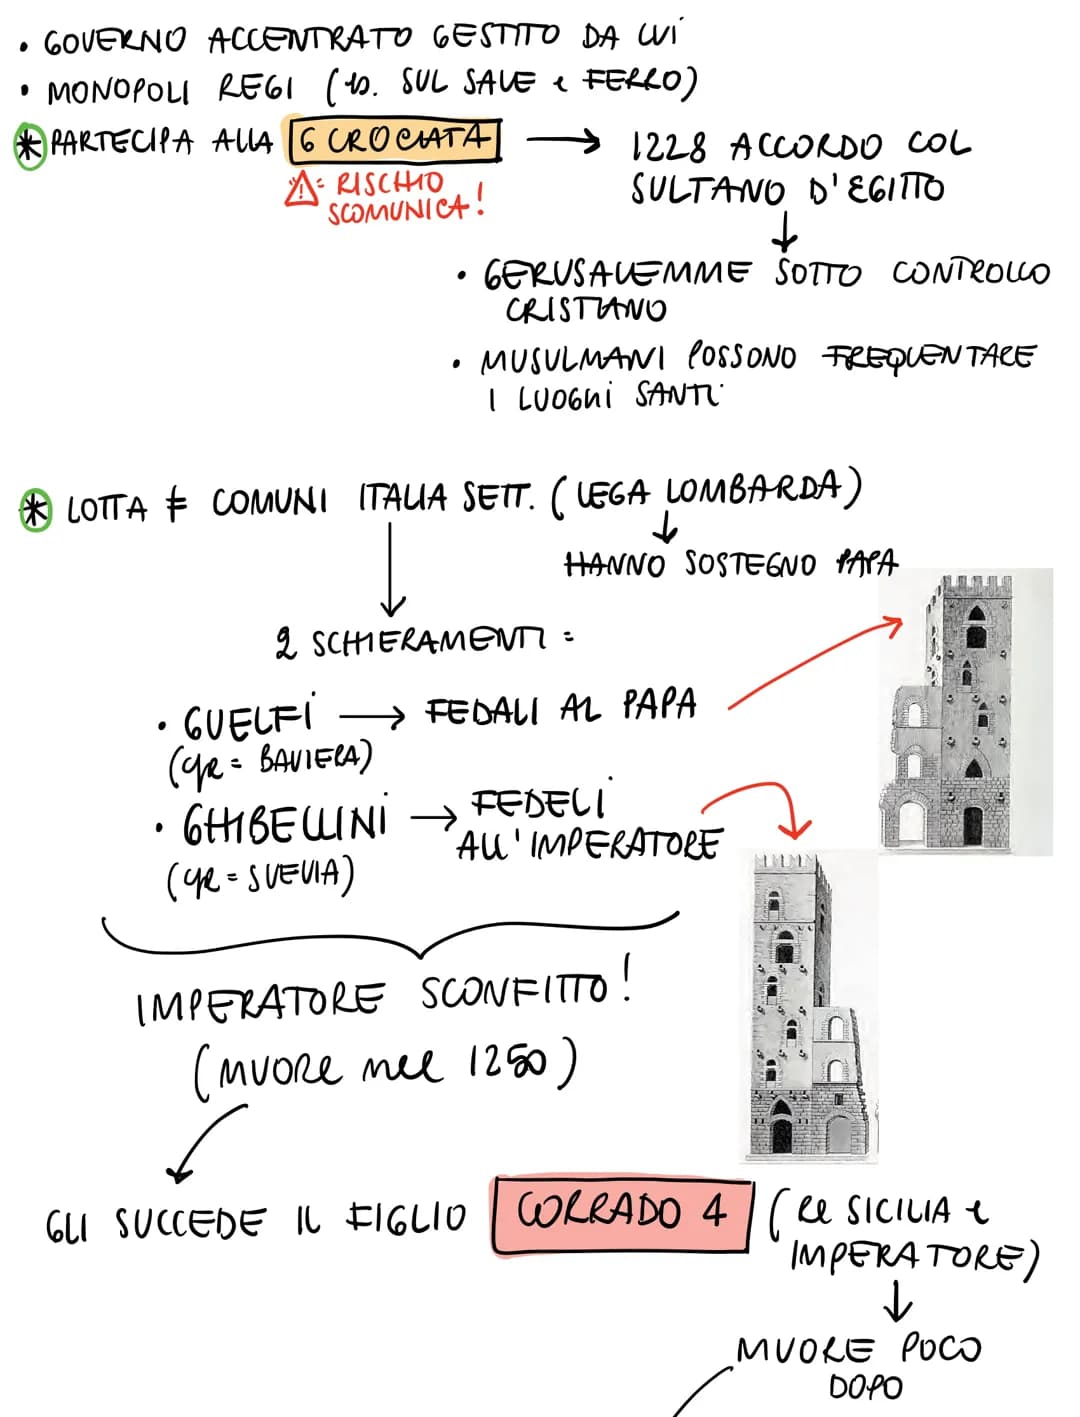 • GOVERNO ACCENTRATO GESTITO DA LUI
• MONOPOLI REGI (ES. SUL SALE E FERRO)
* PARTECIPA ALLA 6 CROCIATA → 1228 ACCORDO COL
SULTANO D'EGITTO
⚠: RISCHIO
SCOMUNICA!
↓
• GERUSALEMME SOTTO CONTROLLO
CRISTIANO
• MUSULMANI POSSONO FREQUENTARE
I LUOGHI SANTI
* LOTTA ≠ COMUNI ITALIA SETT. (LEGA LOMBARDA)
↓
HANNO SOSTEGNO PAPA
2 SCHIERAMENTI =
• GUELFI → FEDALI AL PAPA
(qr = BAVIERA)
• GHIBELLINI → FEDELI
ALL'IMPERATORE
(qr = SVEVIA)
IMPERATORE SCONFITTO!
(MUORE nel 1250)
GLI SUCCEDE IL FIGLIO CORRADO 4 (RE SICILIA E
IMPERATORE)
↓
MUORE POCO
DOPO